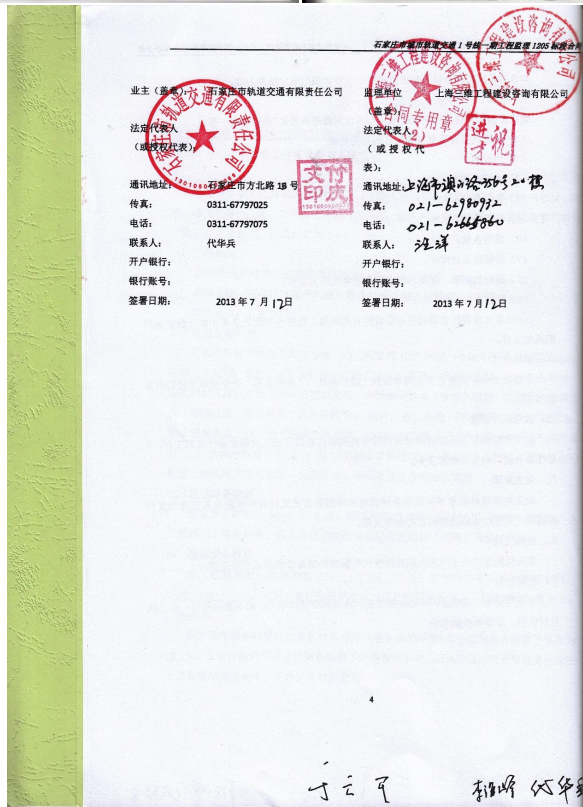 石家庄市城市轨道交通1号线一期工程监理1205标段合同
业主（盖章）： 石家庄市轨道交通有限责任公司
法定代表人
（或授权代表）：
通讯地址： 石家庄市方北路15号
传真： 0311-67797025
电话： 0311-67797075
联系人： 代华兵
开户银行：
银行账号：
签署日期： 2013年7月12日
监理单位 上海三维工程建设咨询有限公司
（盖章）：
法定代表人
（或授权代
表）：
通讯地址： 上海市澳门路356号20楼
传真： 021-62980932
电话： 021-62665860
联系人： 汪洋
开户银行：
银行账号：
签署日期： 2013年7月12日
石家庄市轨道交通有限责任公司
付庆文印
上海三维工程建设咨询有限公司
合同专用章
（2）
祝进才
三维工程建设咨询有限公司
4
代华兵